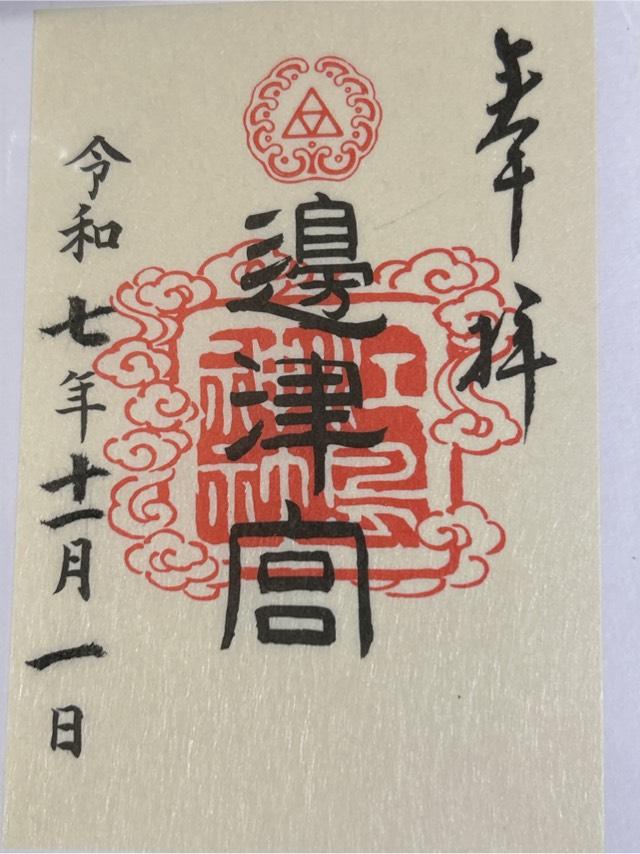 奉拝
邊津宮
令和七年十一月一日